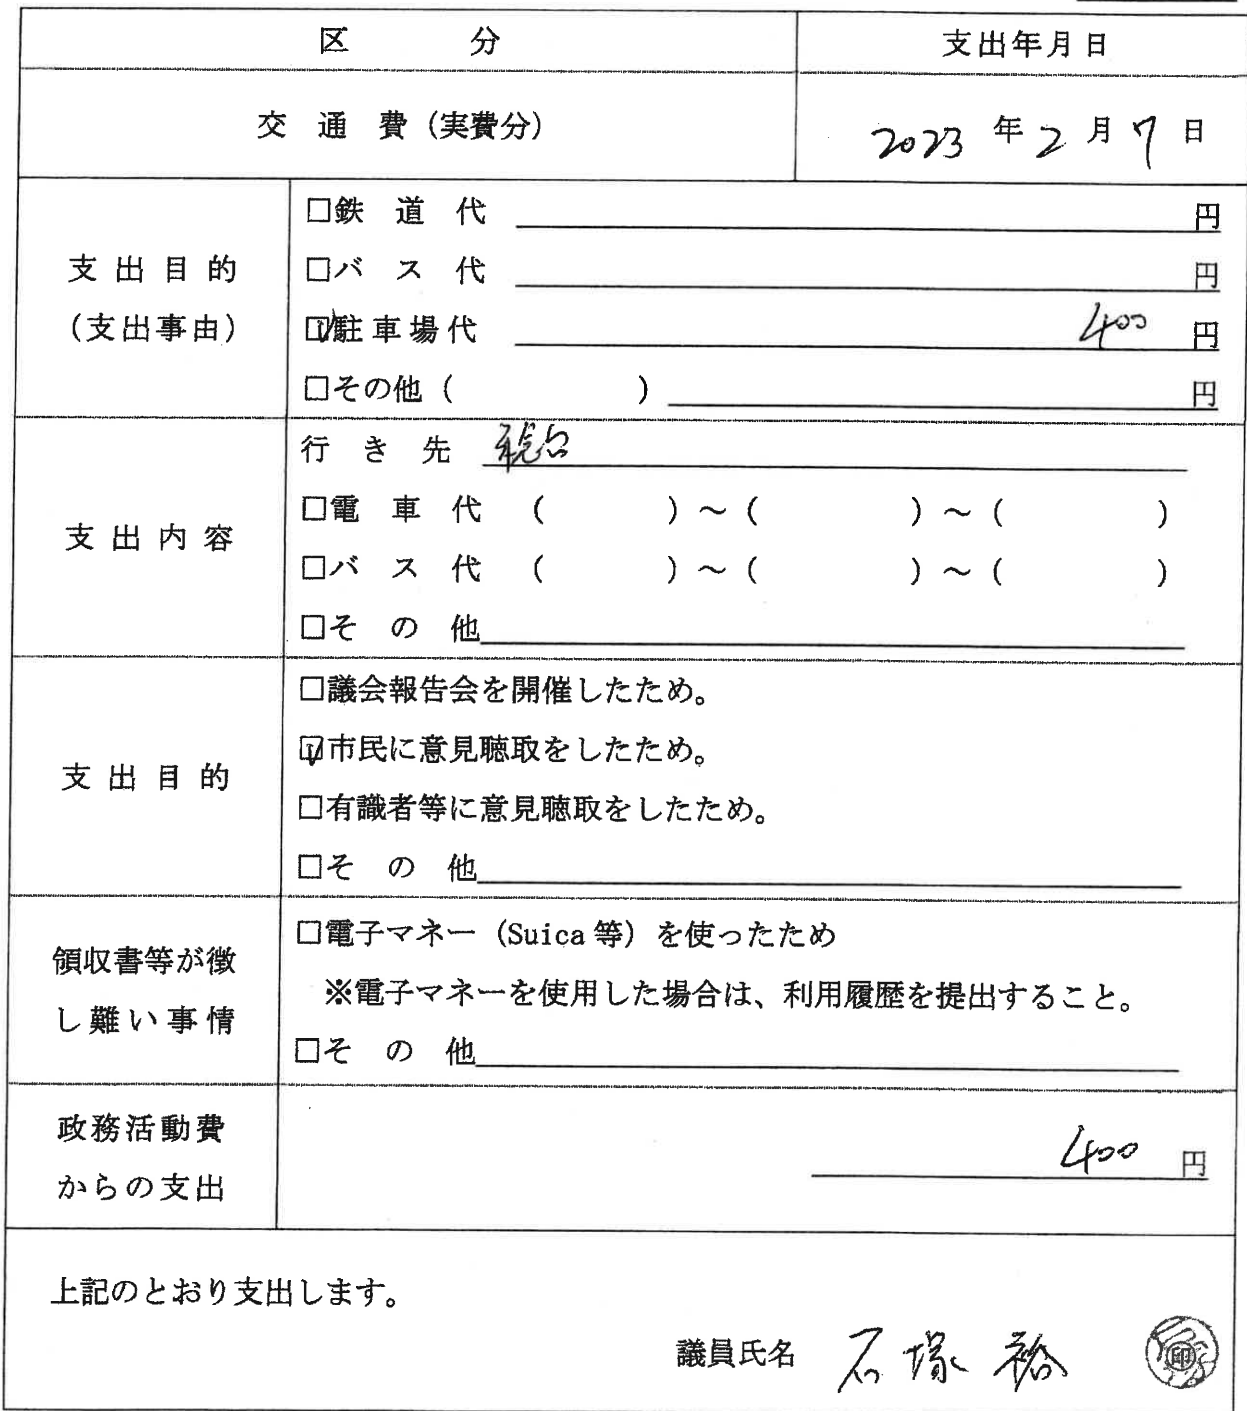 区 分 支出年月日
交 通 費（実費分） 2023 年 2 月 7 日
支出目的
（支出事由）
□鉄 道 代 円
□バ ス 代 円
☑駐車場代 400 円
□その他（ ） 円
支出内容
行 き 先
□電 車 代 （ ）～（ ）～（ ）
□バ ス 代 （ ）～（ ）～（ ）
□そ の 他
支出目的
□議会報告会を開催したため。
☑市民に意見聴取をしたため。
□有識者等に意見聴取をしたため。
□そ の 他
領収書等が徴
し難い事情
□電子マネー（Suica等）を使ったため
※電子マネーを使用した場合は、利用履歴を提出すること。
□そ の 他
政務活動費
からの支出
400 円
上記のとおり支出します。
議員氏名 石塚 裕 印